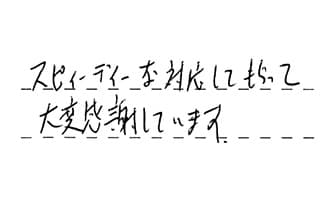 スピィーディーな対応してもらって
大変感謝しています.